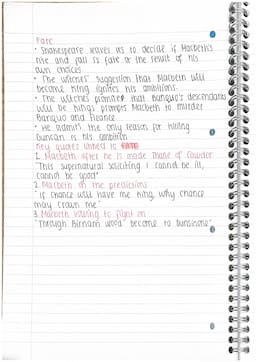 Fate
• Shakespeare leaves us to decide if Macbeth's
rise and fall is fate or the result of his
own choices.
• The witches' suggestion that Macbeth will
become king ignites his ambitions.
• The witches promise that Banquo's descendants
will be kings prompts Macbeth to murder
Banquo and Fleance
• He admits the only reason for killing
Duncan is his ambition
Key quotes linked to FATE
1. Macbeth after he is made Thane of Cawdor
"This supernatural soliciting / cannot be ill,
cannot be good"
2. Macbeth on the predictions
"If chance will have me king, why chance
may crown me"
3. Macbeth vowing to fight on
"Through Birnam wood be come to Dunsinane"